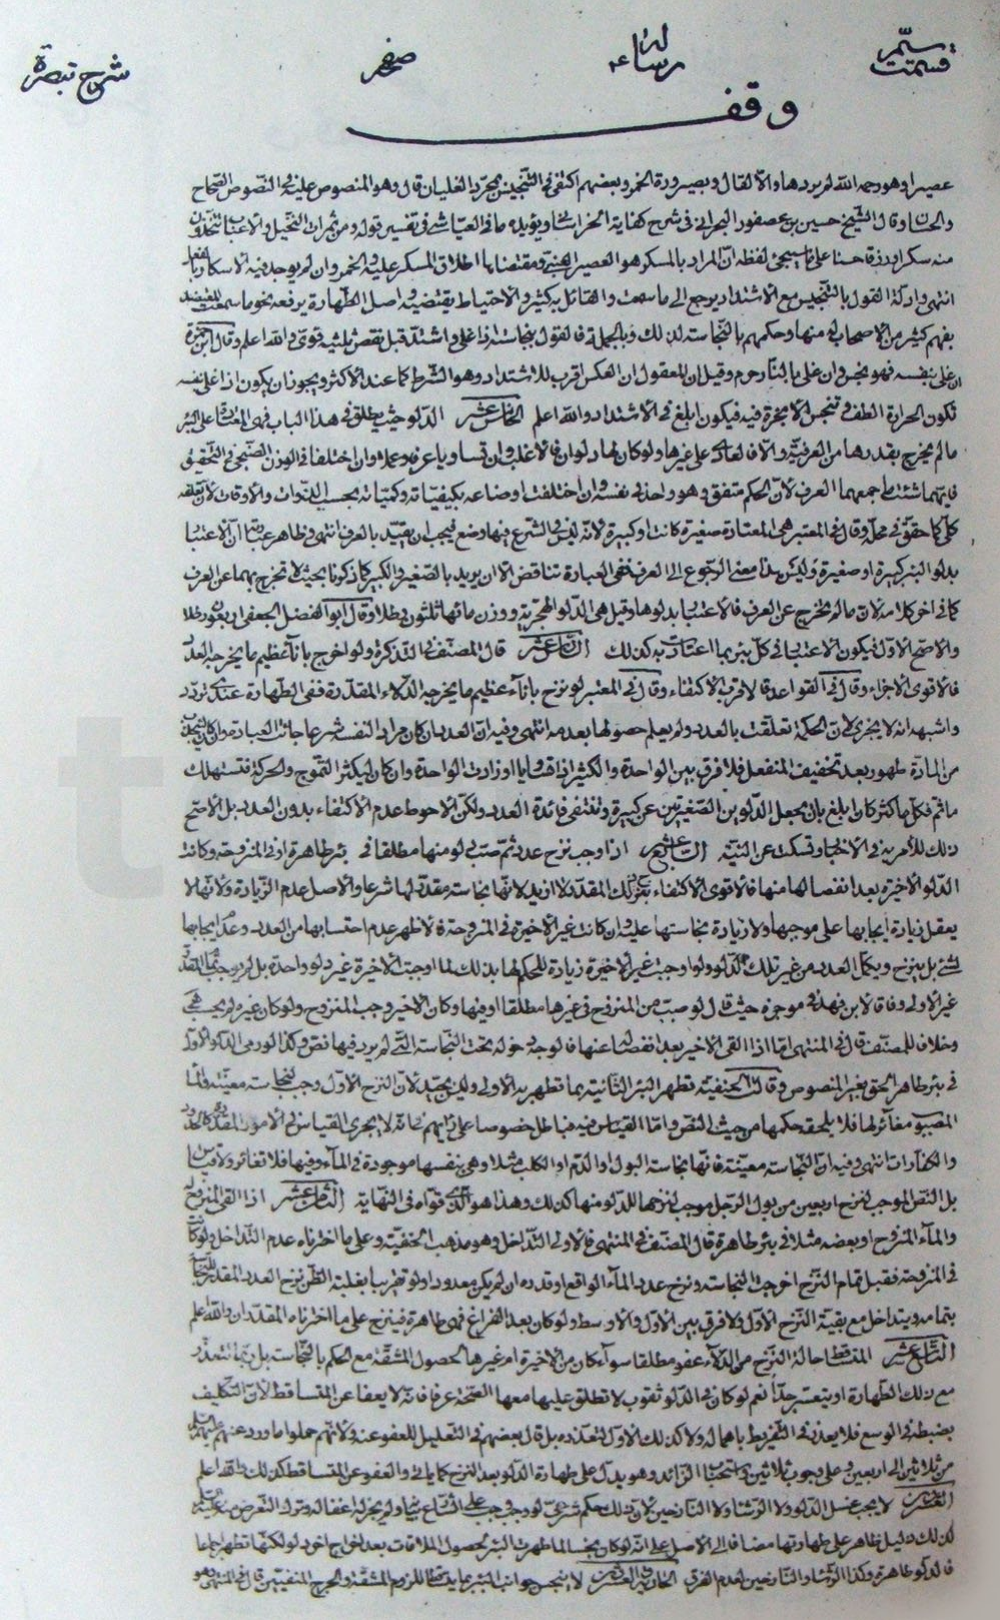 قسمت سیّم رسالهٔ صفحه شرح تبصرة
وقف
عصيرا وهو رحمه الله لم يردها والا لقال وبصيرورة الخمر وبعضهم اكتفى فى التنجيس بمجرد الغليان قال وهو المنصوص عليه فى النصوص الصحاح
والحسان وقال الشيخ حسين بن عصفور البحرانى فى شرح كفاية الخراسانى ويؤيده ما فى العياشى فى تفسير قوله ومن ثمرات النخيل والاعناب تتخذون
منه سكرا ورزقا حسنا على ما سيجئ لفظه ان المراد بالمسكر هو العصير العنبى ومقتضاها اطلاق المسكر عليه والخمر وان لم يوجد فيه الاسكار بالفعل
انتهى وادلة القول بالتنجيس مع الاشتداد يرجع الى ما سمعت والقائل به كثير والاحتياط يقتضيه واصل الطهارة يرفعه نحو ما سمعت
بفهم كثير من الاصحاب له منها وحكمهم بالنجاسة لذلك وبالجملة فالقول بنجاسته اذا غلى واشتد قبل نقص ثلثيه قوى والله اعلم وقال ابن حمزة
ان غلى بنفسه فهو نجس وان غلى بالنار حرم وقيل ان المعقول ان العكس اقرب للاشتداد وهو الشرط كما عند الاكثر ويجوز ان يكون اذا غلى بنفسه
تكون الحرارة الطف فى تنجس الابخرة فيه فيكون ابلغ فى الاشتداد والله اعلم الخامس عشر الدلو حيث يطلق فى هذا الباب فهى المعتادة على البئر
ما لم يخرج بقدرها من العرفية والا فالعادى على غيرها ولو كان لها دلوان فالاغلب وان تساويا عرفا وعملا وان اختلفا فى الوزن
فايهما شئت اجمعهما العرف لان الحكم متفق وهو واحد فى نفسه وان اختلفت اوضاعه بكيفياته وكمياته بحسب الذوات والاوقات
كلّى كما حقق فى محله وقال فى المعتبر هى المعتادة صغيرة كانت او كبيرة لانه ليس فى الشرع فيها وضع فيجب ان يقيد بالعرف انتهى وظاهر عبارته ان الاعتبار
بدلو البئر كبيرة او صغيرة وليس هذا معنى الرجوع الى العرف ففى العبارة تناقض الا ان يريد بالصغير والكبير كما ذكرنا بحيث لا تخرج بهما عن العرف
كما فى اخر كلامه لان ما لم يخرج عن العرف فالاعتبار بدلوها وقيل هى الدلو الهجرية ووزن مائها ثلثون رطلا وقال ابو الفضل الجعفى اربعون رطلا
والاصح الاول فيكون الاعتبار فى كل بئر بما اعتادت به كذلك السادس عشر قال المصنف فى التذكرة ولو اخرج باناء عظيم ما يخرجه العدد
فالاقوى الاجزاء وقال فى القواعد فالاقرب الاكتفاء وقال فى المعتبر لو نزح باناء عظيم ما يخرجه الدلاء المقدرة ففى الطهارة عندى تردد
واشبهه انه لا يجزى لان الحكمة تعلقت بالعدد ولم يعلم حصولها بعدمه انتهى وفيه ان العدد ان كان مرادا لنفسه شرعا
من المادة طهور بعد تخفيف المنفعل فلا فرق بين الواحدة والكثير اذا تساويا او زادت الواحدة وان كان ليكثر التموج والحركة فتستهلك
ما ثم فكل ما كثر كان ابلغ بان يجعل الدلوين الصغيرتين عن كبيرة وتنتفى فائدة العدد ولكن الاحوط عدم الاكتفاء بدون العدد بل الاصح
ذلك للامر به فى الاخبار وتسكت عن النية السابع عشر اذا وجب نزح عدد ثم صب دلو منها مطلقا فى بئر طاهرة او فى المنزوحة وكانت
الدلو الاخيرة بعد انفصالها منها فالاقوى الاكتفاء بنزح ذلك المقدر لا ازيد لانها نجاسة مقدر لها شرعا والاصل عدم الزيادة ولانها لا
يعقل زيادة ايجابها على موجبها ولا زيادة نجاستها عليه وان كانت غير الاخيرة فى المنزوحة فالاظهر عدم احتسابها من العدد وعدم ايجابها
لشئ بل ينزح ويكمل العدد من غير تلك الدلو ولو اوجبت غير الاخيرة زيادة للحكم لها بذلك لما اوجبت الاخيرة غير دلو واحدة بل لم يوجب
غير الاولى وفاقا لابن فهد فى موجزه حيث قال لو صب من المنزوح فى غيرها مطلقا او فيها وكان الاخير وجب المنزوح ولو كان غيره لم يجب شئ
وخلافا للمصنف قال فى المنتهى اما اذا القى الاخير بعد انفصاله عنها فالوجه دخوله تحت النجاسة التى لم يرد فيها نص وكذا لو رمى الدلو الاول
فى بئر طاهر الحق بغير المنصوص وقالت الحنفية تطهر البئر الثانية بما تطهر به الاولى وليس بجيد لان النزح الاول وجب لنجاسة معينة والماء
المصبوب مغاير لها فلا يلحقه حكمها من حيث النص واما القياس فيه فباطل خصوصا على رأيهم فانه لا يجرى القياس فى الامور المقدرة كالحدود
والكفارات انتهى وفيه ان النجاسة معينة فانها نجاسة البول او الدم او الكلب مثلا وهى بنفسها موجودة فى الماء وفيها فلا تغاير ولا قياس
بل النص الموجب لنزح اربعين من بول الرجل موجب لنزحها للدلو منها كذلك وهذا هو الذى قواه فى النهاية الثامن عشر اذا القى المنزوح
والماء المنزوح او بعضه مثلا فى بئر طاهرة قال المصنف فى المنتهى فالاولى التداخل وهو مذهب الحنفية وعلى ما اخترناه عدم التداخل ولو كان
فى المنزوحة فقبل تمام النزح اخرجت النجاسة ونزح عدد الماء الواقع او قدره ان لم يكن معدودا ولو تقريبا بغلبة الظن نزح العدد المقدر للنجاسة
بتمامه ويتداخل مع بقية النزح الاول ولا فرق بين الاول والاوسط ولو كان بعد الفراغ فهى طاهرة فينزح على ما اخترناه المقدر ان والله اعلم
التاسع عشر المتساقط حالة النزح من الدلاء عفو مطلقا سواء كان من الاخيرة ام غيرها لحصول المشقة مع الحكم بالنجاسة بل ربما تتعذر
مع ذلك الطهارة او يتعسر جدا نعم لو كان فى الدلو ثقوب لا تطلق عليها معها الصحة عرفا فانه لا يعفا عن المتساقط لان التكليف
بضبطه فى الوسع فلا يعذر فى التفريط باهماله ولا كذلك الاول لتعذره بل قال بعضهم فى التعليل للعفو عنه ولانهم حملوا ما ورد عنهم عليهم السلام
من ثلاثين الى اربعين على وجوب ثلاثين واستحباب الزائد وهو يدل على طهارة الدلو بعد النزح كما يأتى والعفو عن المتساقط كذلك والله اعلم
العشرون لا يجب غسل الدلو ولا الرشا ولا النازحين لان ذلك حكم شرعى لو وجب وجب على الشارع بيانه ولم يجز له اغفاله وترك التعرض منه
لذلك دليل ظاهر على طهارتها مضافا الى الاصل على انه لو كان نجسا لما طهرت البئر لحصول الملاقات بعد اخراج اخر دلو لكنها تطهر اجماعا
فالدلو طاهرة وكذا الرشا والنازحين لعدم الفرق الحادى والعشرون لا ينجس جوانب البئر بما يسقط للزوم المشقة والحرج المنفيين قال فى المنتهى وهو